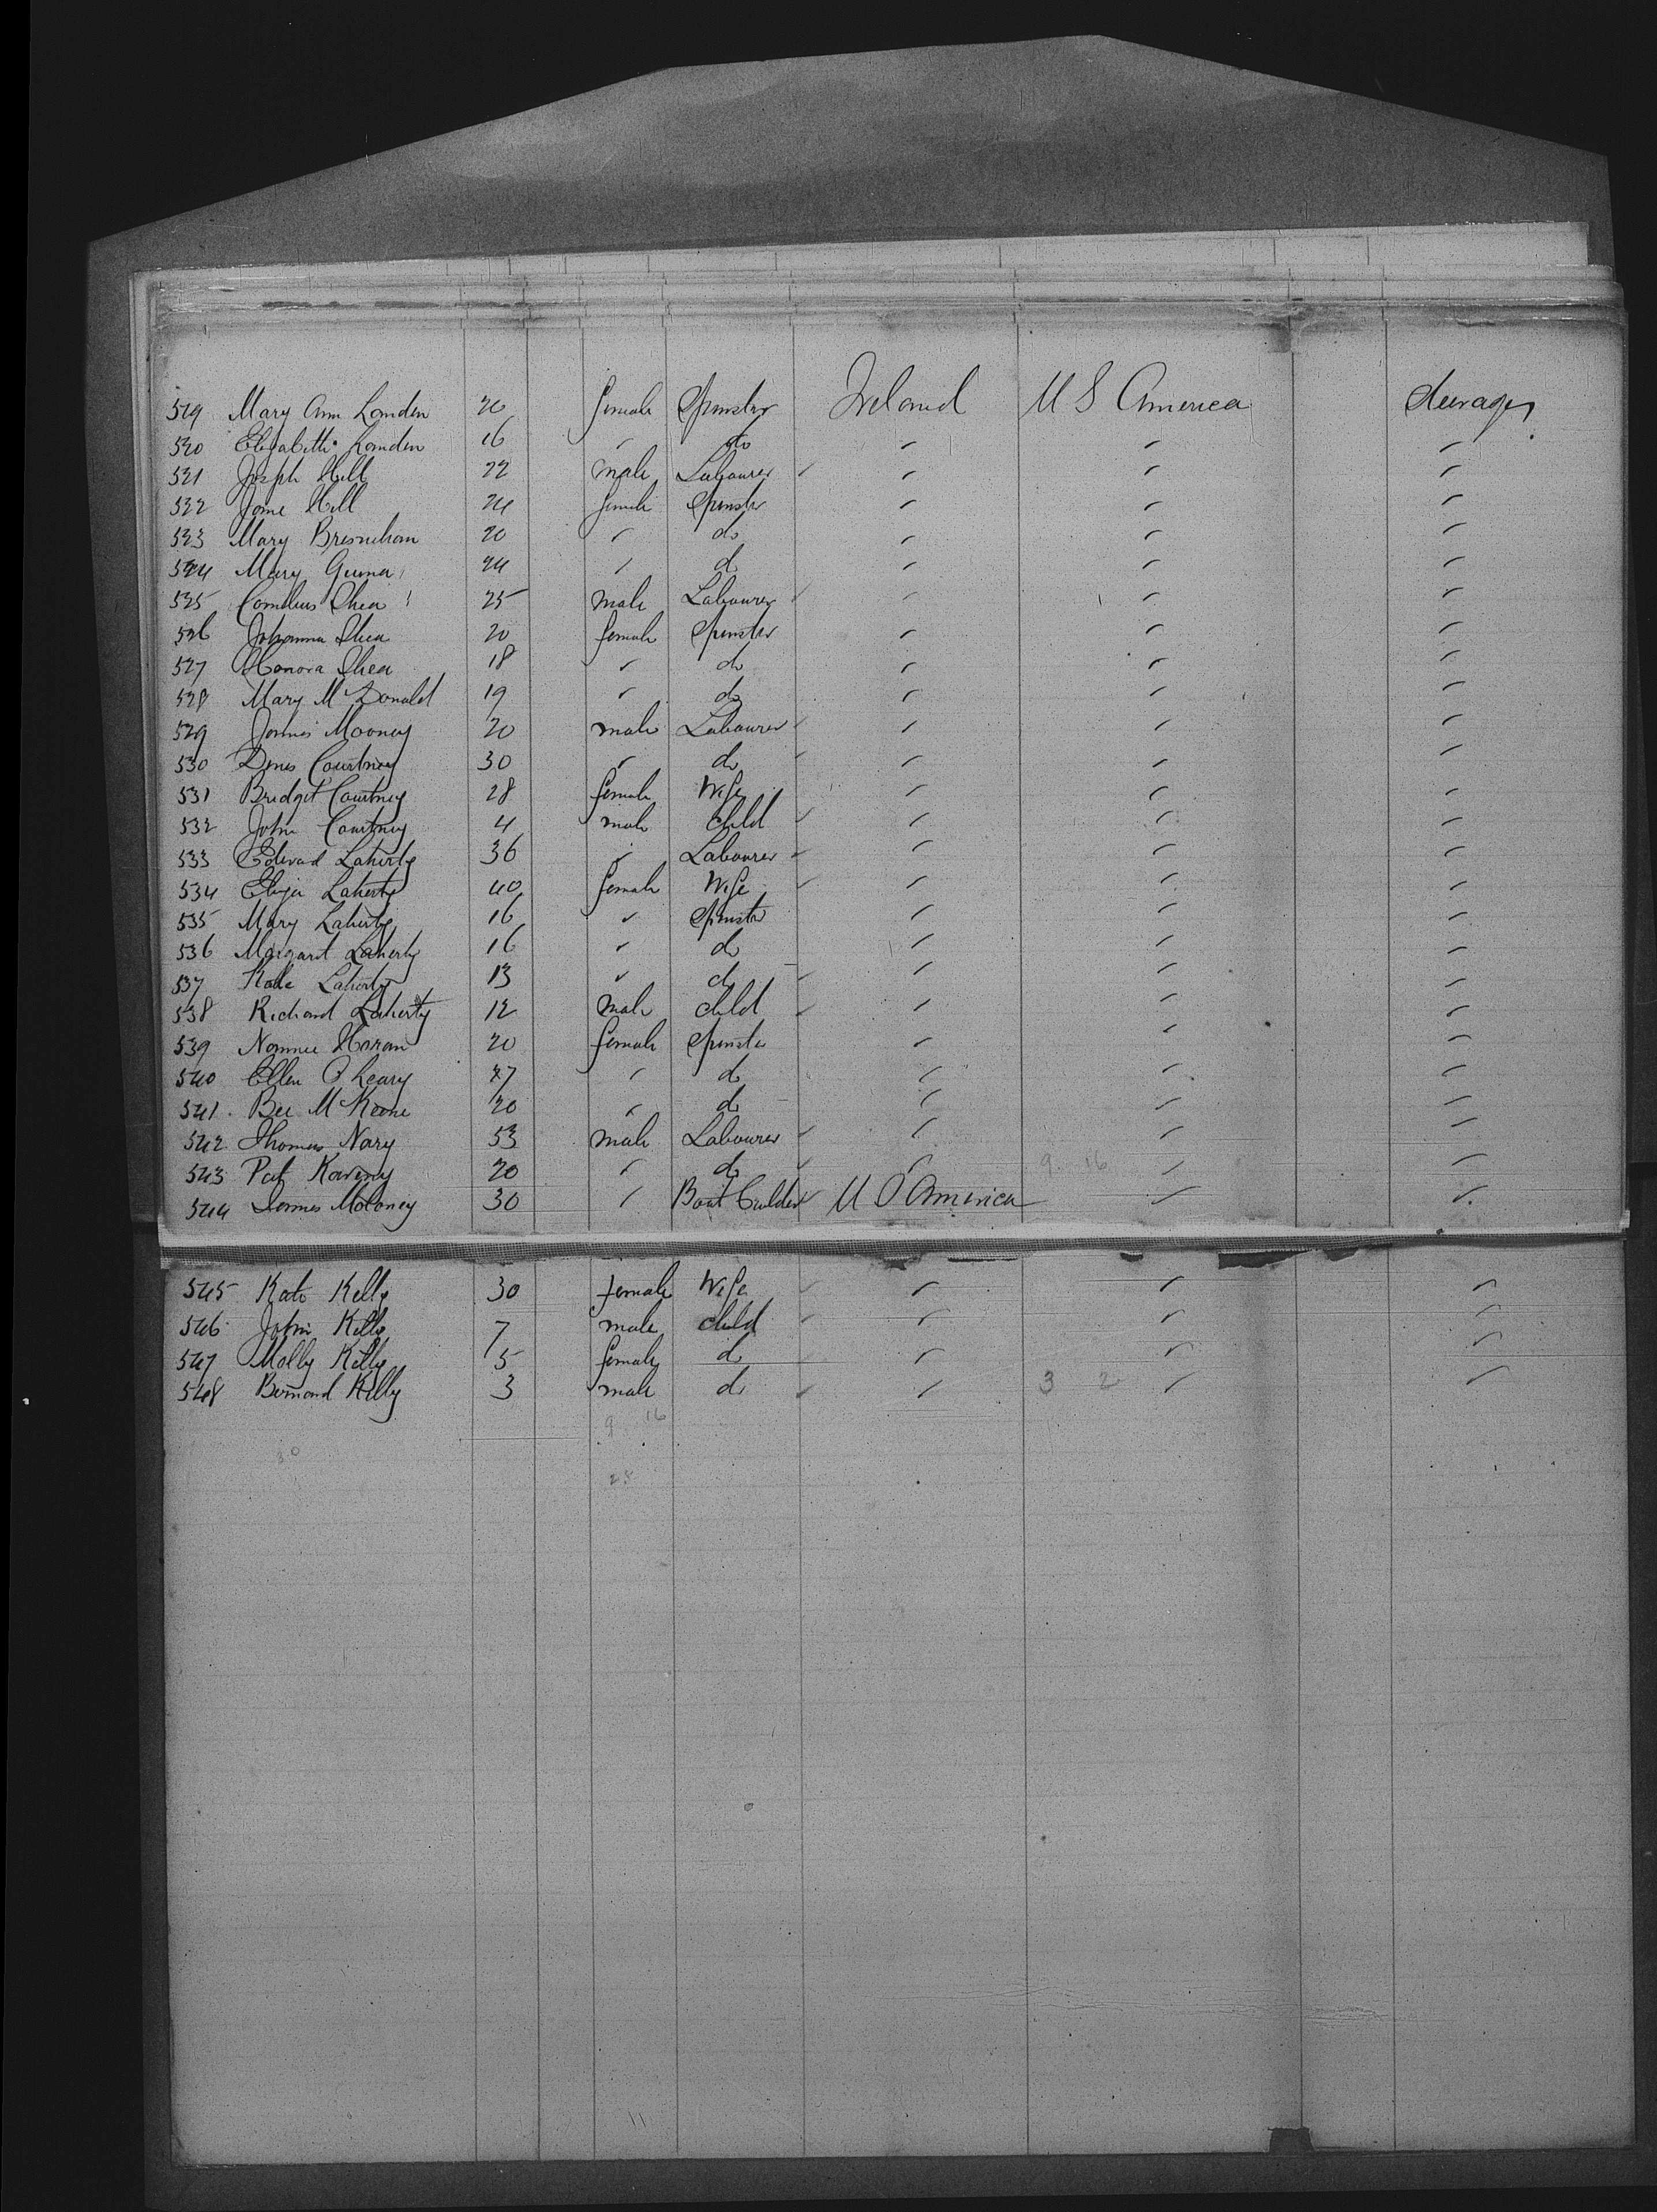 519 Mary Ann Lomden 20 female Spinster Ireland U S America Steerage
520 Elizabeth Lomden 16 " do " " "
521 Joseph Hill 22 male Labourer " " "
522 Jane Hill 24 female Spinster " " "
523 Mary Bresnehan 20 " do " " "
524 Mary 24 " do " " "
525 Cornelius Shea 25 male Labourer " " "
526 Johanna Shea 20 female Spinster " " "
527 Honora Shea 18 " do " " "
528 Mary McDonald 19 " do " " "
529 James Mooney 20 male Labourer " " "
530 Denis Courtney 30 " do " " "
531 Bridget Courtney 28 female Wife " " "
532 John Courtney 4 male child " " "
533 Edward Laherty 36 " Labourer " " "
534 Eliza Laherty 40 female Wife " " "
535 Mary Laherty 16 " Spinster " " "
536 Margaret Laherty 16 " do " " "
537 Kate Laherty 13 " do " " "
538 Richard Laherty 12 male child " " "
539 Nannie Horan 20 female Spinster " " "
540 Ellen O'Leary 27 " do " " "
541 Bee McKeone 20 " do " " "
542 Thomas Nary 53 male Labourer " " "
543 Pat Kaveny 20 " do " 9 16 " "
544 James Moloney 30 " Boat Builder U S America " "
545 Kate Kelly 30 female Wife " " "
546 John Kelly 7 male child " " "
547 Molly Kelly 5 female do " " "
548 Bernard Kelly 3 male do " 3 2 " "
9 16